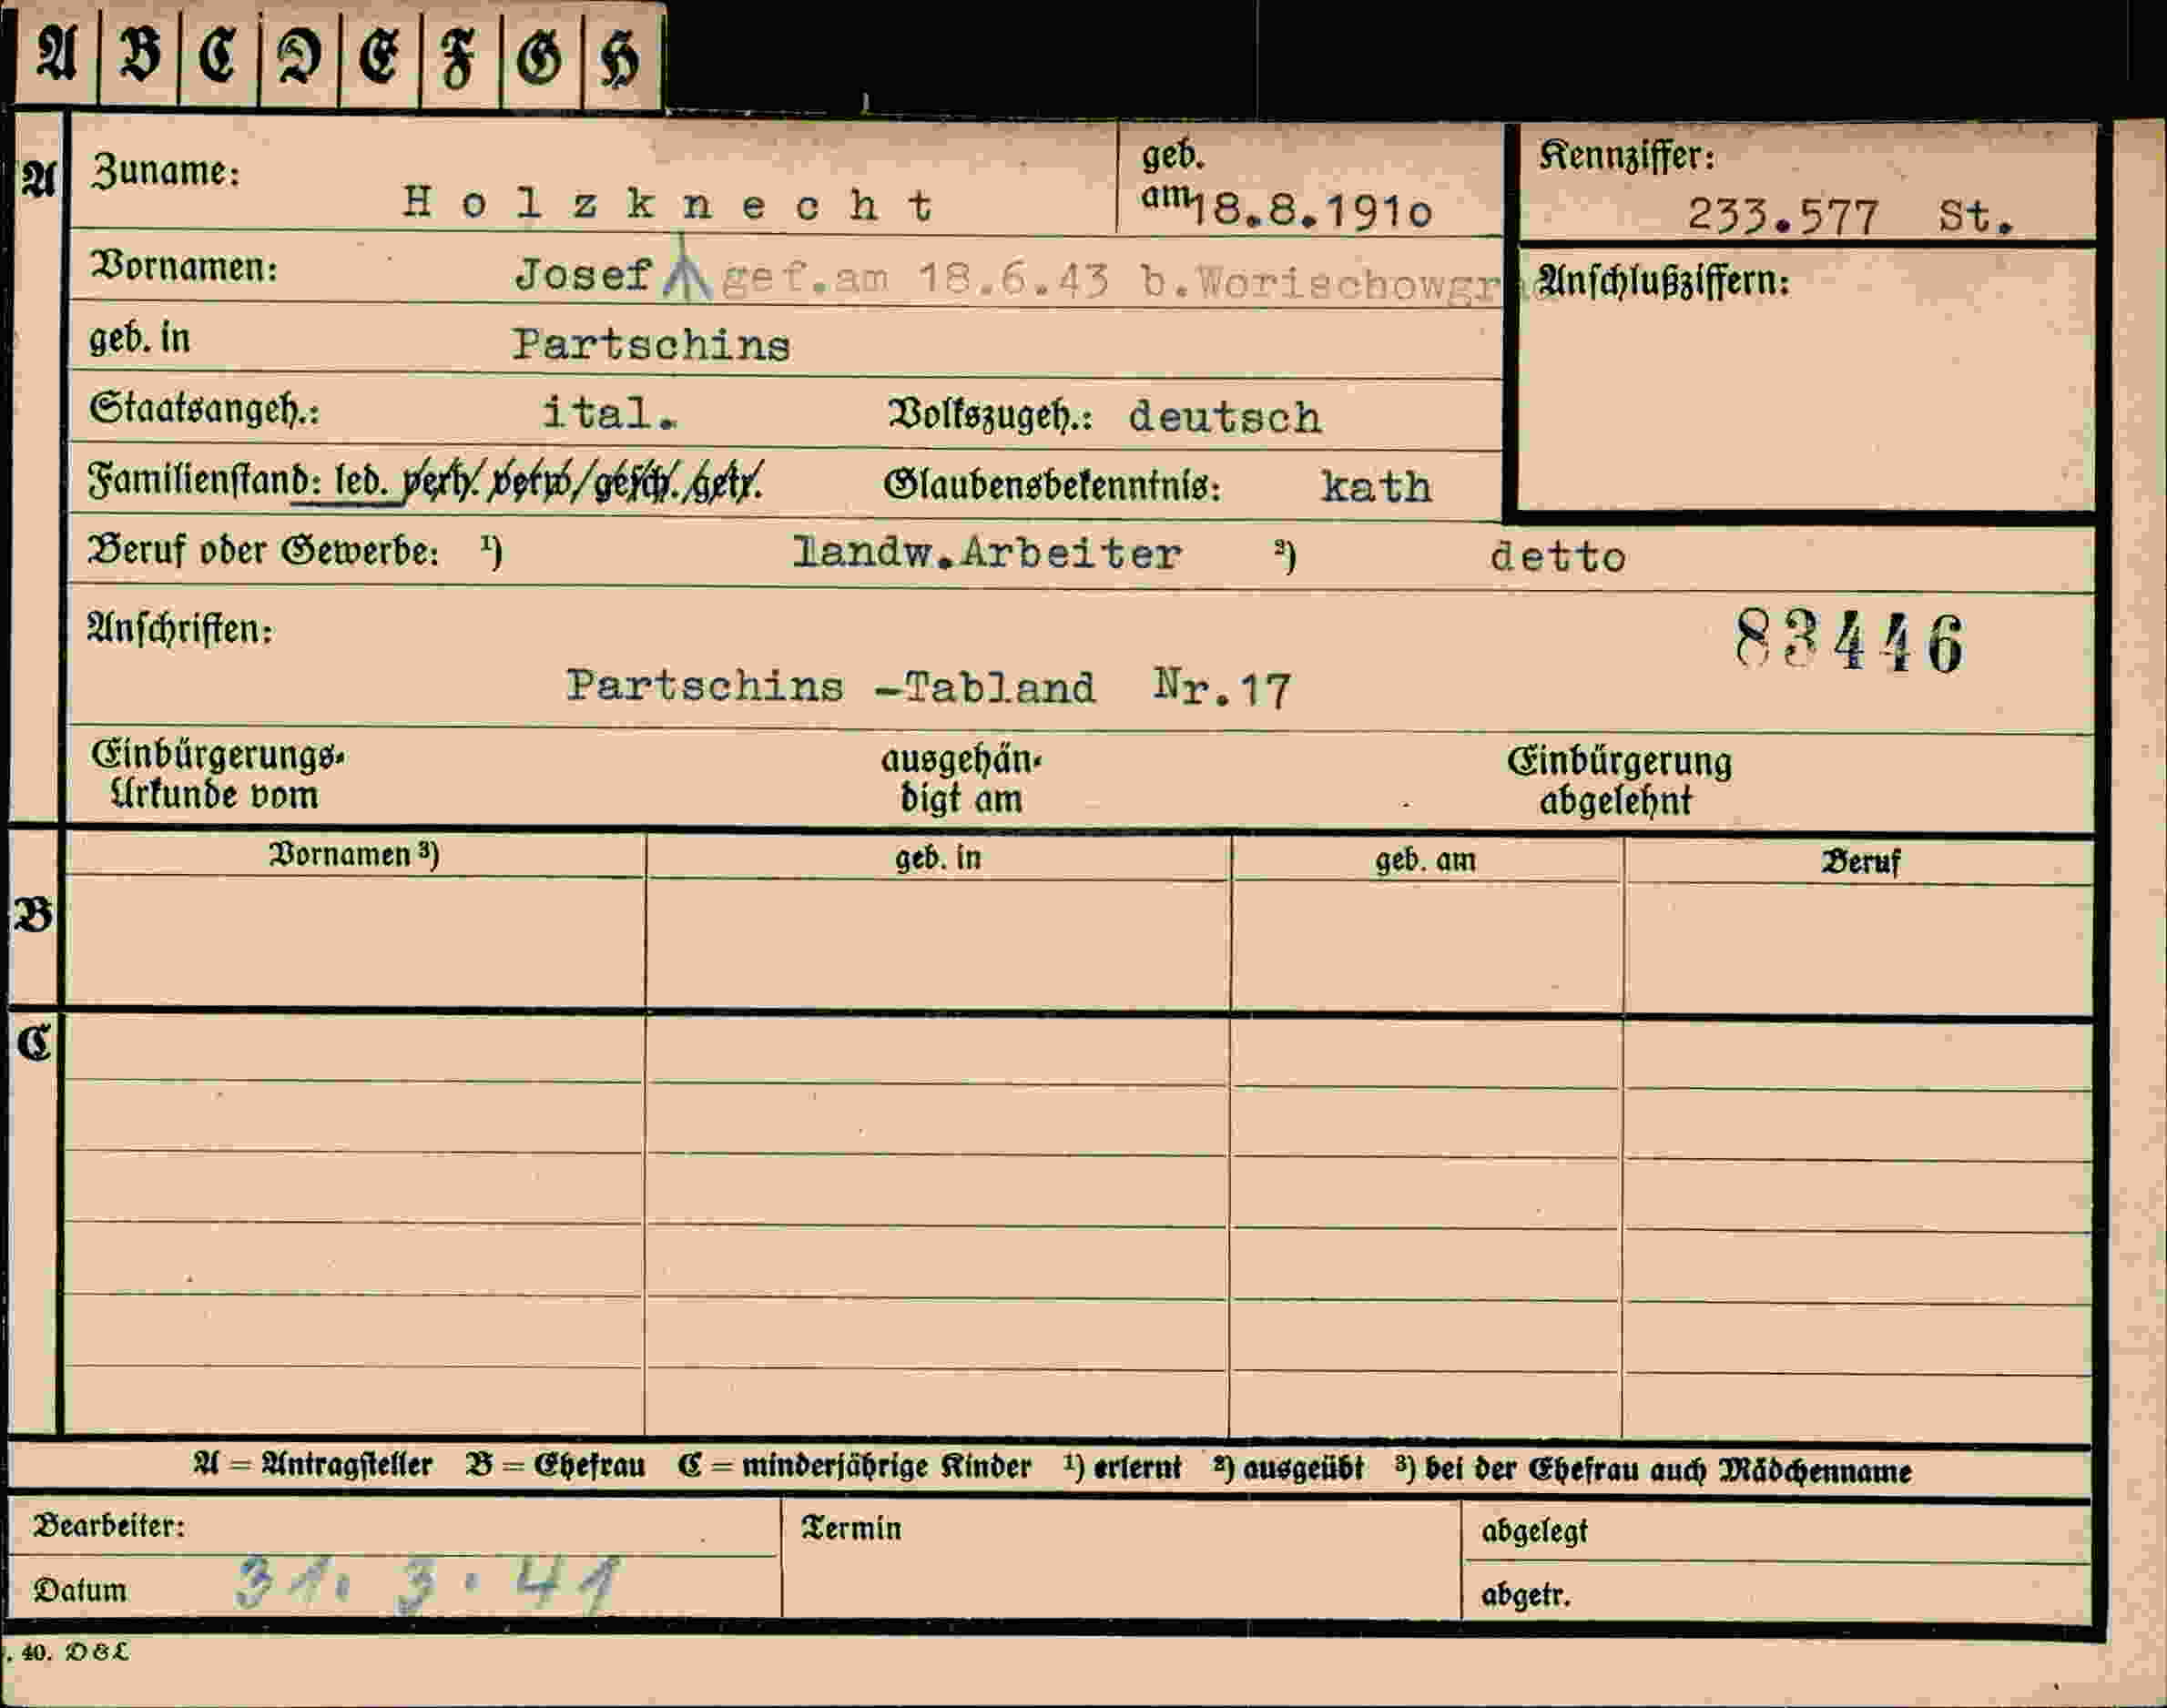 A B C D E F G H
A Zuname: Holzknecht geb. am 18.8.1910 Kennziffer: 233.577 St.
Vornamen: Josef gef.am 18.6.43 b.Worischowgr Anschlußziffern:
geb. in Partschins
Staatsangeh.: ital. Volkszugeh.: deutsch
Familienstand: led. verh. verw. gesch. getr. Glaubensbekenntnis: kath
Beruf oder Gewerbe: ¹) landw.Arbeiter ²) detto
Anschriften: 83446
Partschins -Tabland Nr.17
Einbürgerungs- ausgehän- Einbürgerung
Urkunde vom digt am abgelehnt
Vornamen ³) geb. in geb. am Beruf
B
C
A = Antragsteller B = Ehefrau C = minderjährige Kinder ¹) erlernt ²) ausgeübt ³) bei der Ehefrau auch Mädchenname
Bearbeiter: Termin abgelegt
Datum 31. 3. 41 abgetr.
. 40. DBL